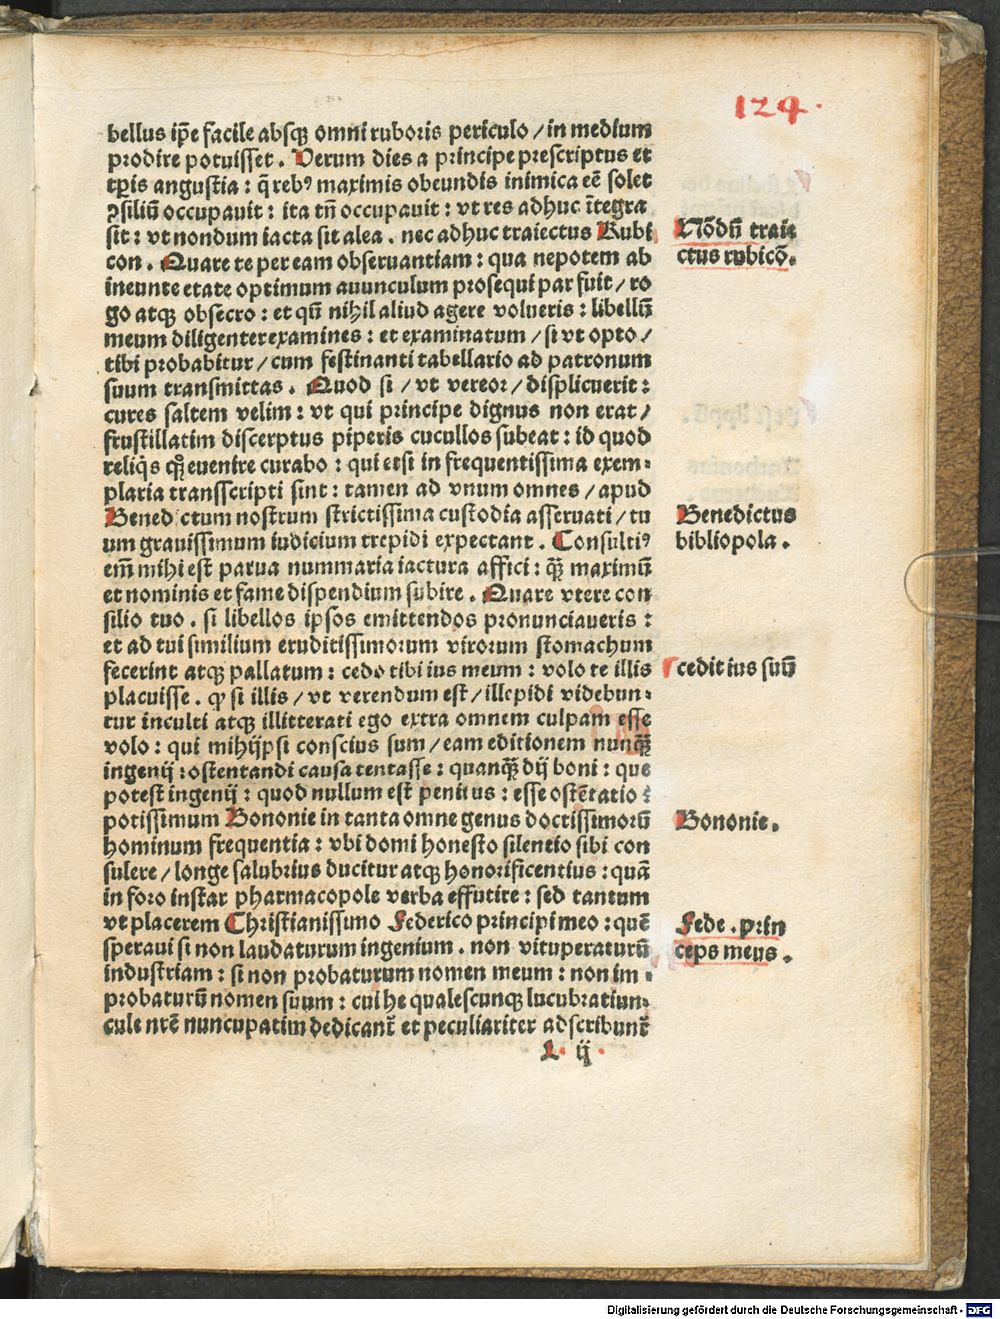 124.
bellus ip̄e facile absqꝫ omni ruboris periculo / in medium
prodire potuisset . Verum dies a principe prescriptus et
tp̄ris angustia : q̄ rebꝰ maximis obeundis inimica eē solet
ꝯsiliū occupauit : ita tn̄ occupauit : vt res adhuc ītegra
sit : vt nondum iacta sit alea . nec adhuc traiectus Rubi
con . Quare te per eam obseruantiam : qua nepotem ab
ineunte etate optimum auunculum prosequi par fuit / ro
go atqꝫ obsecro : et qm̄ nihil aliud agere volueris : libellū
meum diligenter examines : et examinatum / si vt opto /
tibi probabitur / cum festinanti tabellario ad patronum
suum transmittas . Quod si / vt vereor / displicuerit :
cures saltem velim : vt qui principe dignus non erat /
frustillatim discerptus piperis cucullos subeat : id quod
reliq̇s qꝫ euenire curabo : qui etsi in frequentissima exem⸗
plaria transscripti sint : tamen ad vnum omnes / apud
Benedictum nostrum strictissima custodia asseruati / tu
um grauissimum iudicium trepidi expectant . Consultiꝰ
em̄ mihi est parua nummaria iactura affici : qꝫ̄ maximū
et nominis et fame dispendium subire . Quare vtere con
silio tuo . si libellos ipsos emittendos pronunciaueris :
et ad tui similium eruditissimorum virorum stomachum
fecerint atqꝫ pallatum : cedo tibi ius meum : volo te illis
placuisse . ꝙ si illis / vt verendum est / illepidi videbun⸗
tur inculti atqꝫ illitterati ego extra omnem culpam esse
volo : qui mihijpsi conscius sum / eam editionem nunqꝫ̄
ingenij : ostentandi causa tentasse : quanqꝫ̄ dij boni : que
potest ingenij : quod nullum est penitus : esse ostētatio :
potissimum Bononie in tanta omne genus doctissimorū
hominum frequentia : vbi domi honesto silentio sibi con
sulere / longe salubrius ducitur atqꝫ honorificentius : quā
in foro instar pharmacopole verba effutire : sed tantum
vt placerem Christianissimo Federico principi meo : quē
speraui si non laudaturum ingenium . non vituperaturū
industriam : si non probaturum nomen meum : non im⸗
probaturū nomen suum : cui he qualescunqꝫ lucubratiun⸗
cule nr̄e nuncupatim dedicant᷑ et peculiariter adscribunt᷑
L. ij .
Nōdū traie
ctus rubicō.
Benedictus
bibliopola .
cedit ius suū
Bononie.
Fede . prin
ceps meus .
Digitalisierung gefördert durch die Deutsche Forschungsgemeinschaft - DFG